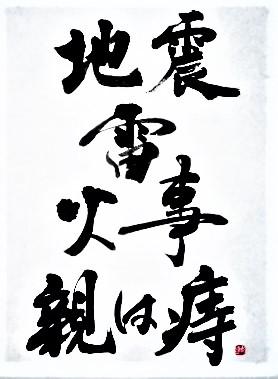 地震
雷
火事
親は痔